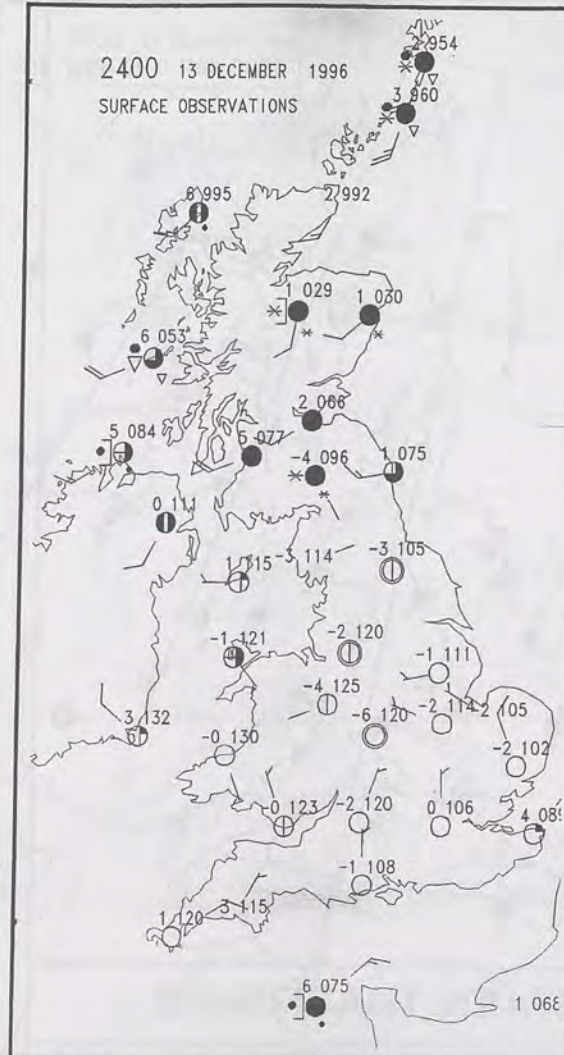 2400 13 DECEMBER 1996
SURFACE OBSERVATIONS
2 954
3 960
6 995
2 992
1 029
1 030
6 053
2 066
5 084
-4 096
1 075
0 111
-3 114
-3 105
-1 121
-2 120
-1 111
-4 125
-2 114
3 132
-0 130
-6 120
-2 102
-0 123
-2 120
0 106
-1 108
3 115
1 120
6 075
1 068